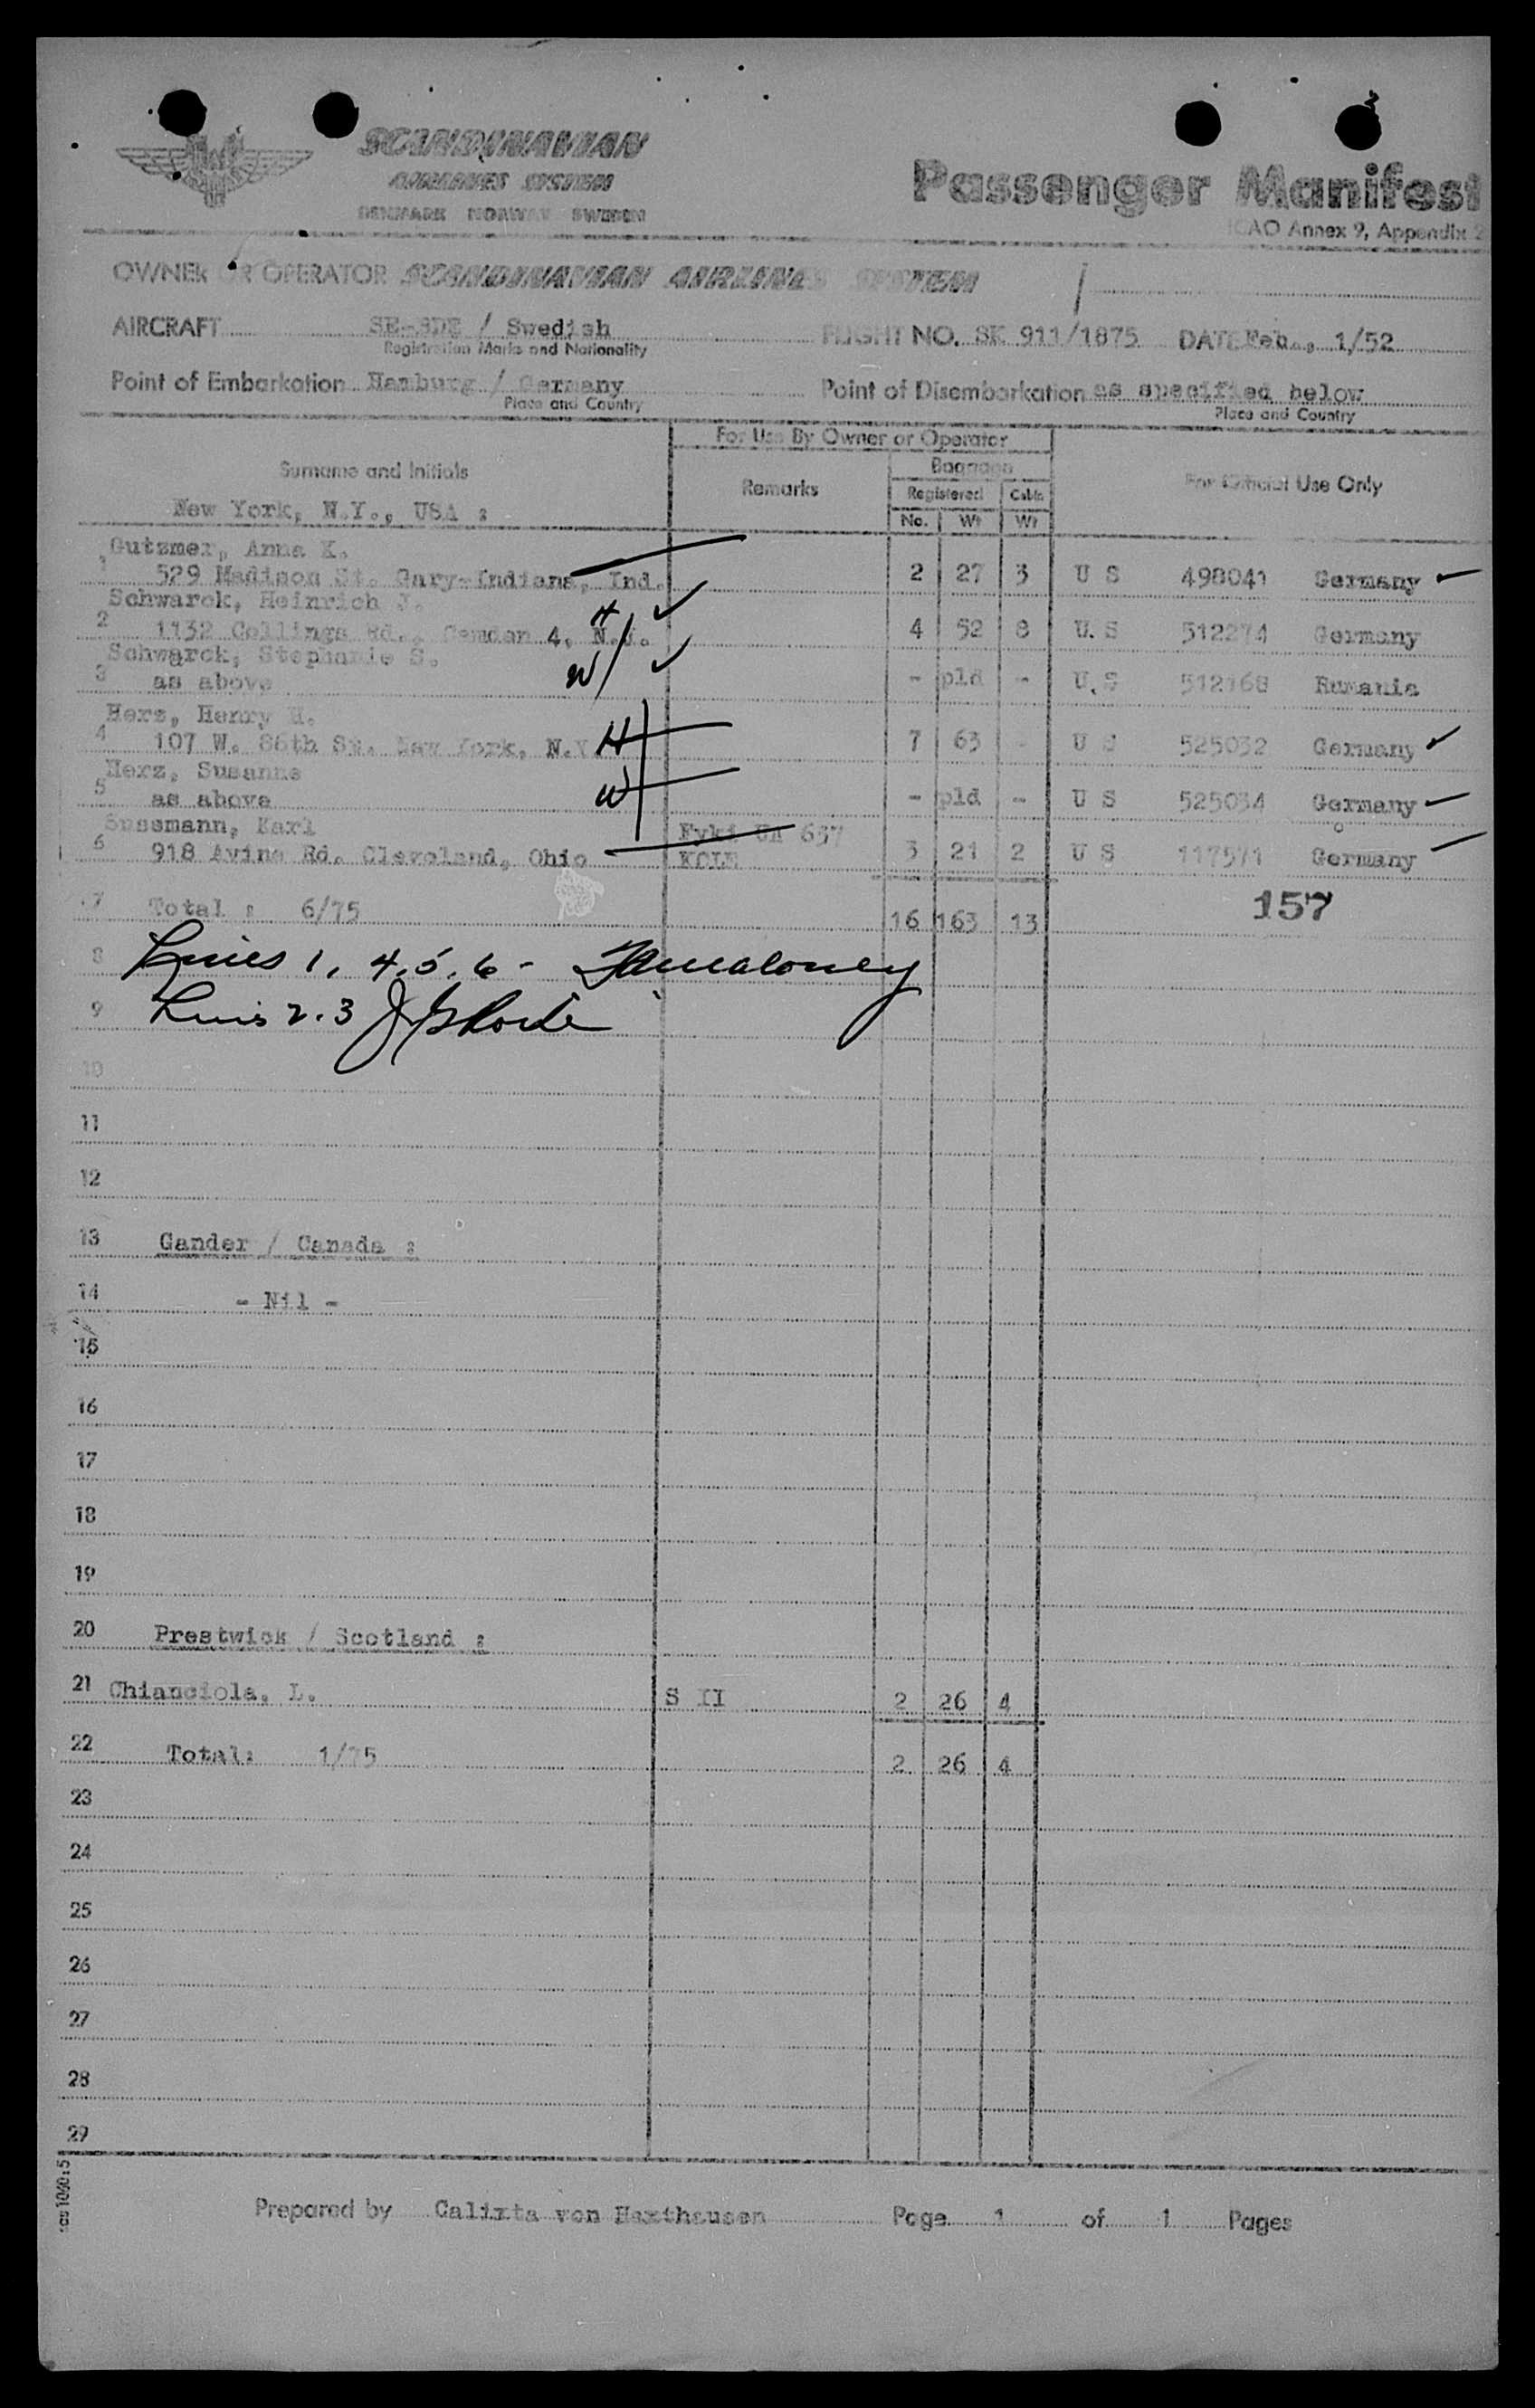 SCANDINAVIAN
AIRLINES SYSTEM
DENMARK NORWAY SWEDEN
Passenger Manifest
ICAO Annex 9, Appendix 2
OWNER OR OPERATOR SCANDINAVIAN AIRLINES SYSTEM
AIRCRAFT SE-BDE / Swedish FLIGHT NO. SK 911/1875 DATE Feb., 1/52
Registration Marks and Nationality
Point of Embarkation Hamburg / Germany Point of Disembarkation as specified below
Place and Country Place and Country
For Use By Owner or Operator
Surname and Initials Remarks Baggage For Official Use Only
Registered Cabin
New York, N.Y., USA : No. Wt Wt
Gutzmer, Anna K.
1 529 Madison St. Gary-Indiana, Ind. 2 27 3 U S 498041 Germany
Schwarck, Heinrich J. H
2 1132 Collings Rd., Camden 4, N.J. 4 52 8 U.S 512274 Germany
Schwarck, Stephanie S.
3 as above W - pld - U.S 512168 Rumania
Herz, Henry H.
4 107 W. 86th St. New York, N.Y. H 7 63 - U S 525032 Germany
Herz, Susanne
5 as above W - pld - U S 525034 Germany
Sussmann, Karl 657
6 918 Avine Rd. Cleveland, Ohio 3 21 2 U S 117571 Germany
7 Total : 6/75 16 163 13 157
8 Lines 1, 4, 5, 6 -
9 Lines 2.3
10
11
12
13 Gander / Canada :
14 - Nil -
15
16
17
18
19
20 Prestwick / Scotland :
21 Chianciola, L. S II 2 26 4
22 Total: 1/75 2 26 4
23
24
25
26
27
28
29
Prepared by Calixta von Haxthausen Page 1 of 1 Pages